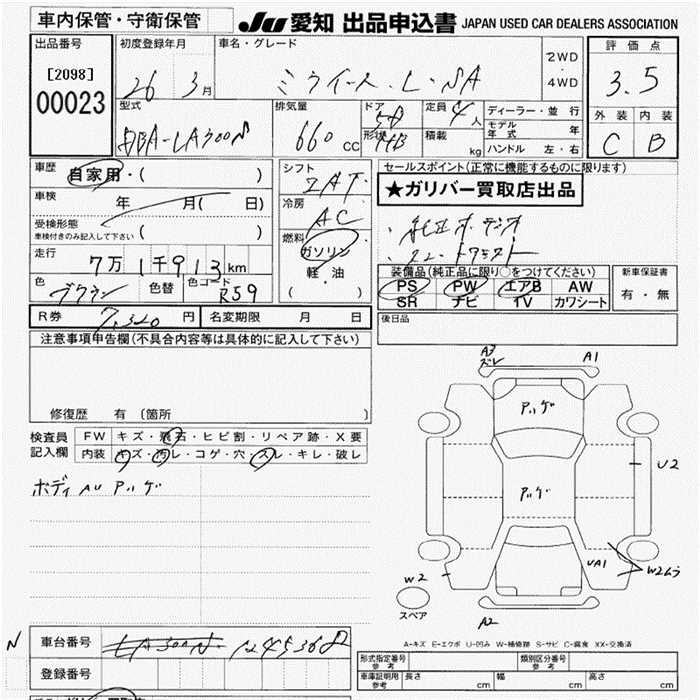 車内保管・守衛保管
JU 愛知 出品申込書 JAPAN USED CAR DEALERS ASSOCIATION
出品番号
[2098]
00023
初度登録年月
26 3月
車名・グレード
ミライース・L・SA
2WD
・
4WD
評価点
3.5
外装 内装
C B
型式
DBA-LA300S
排気量
660 cc
ドア
5D
形状
HB
定員
4人
積載 kg
ディーラー・並行
モデル年式 年
ハンドル 左・右
車歴
自家用・( )
車検 年 月( 日)
受検形態
車検付きのみ記入して下さい ( )
走行
7万1千913km
色 ブラウン 色替 色コード R59
シフト
IAT
冷房
AC
燃料
ガソリン
軽・油
( )
セールスポイント(正常に機能するものに限ります)
★ガリバー買取店出品
装備品(純正品に限り○をつけてください)
PS PW エアB AW
SR ナビ TV カワシート
新車保証書
有・無
R券 7,320円 名変期限 月 日
後日品
注意事項申告欄(不具合内容等は具体的に記入して下さい)
修復歴 有 〔箇所 〕
検査員記入欄
FW キズ・飛石・ヒビ割・リペア跡・X要
内装 キズ・汚レ・コゲ・穴・スレ・キレ・破レ
A3
ズレ
A1
アハゲ
U2
アハゲ
UA1
W2ムラ
W2
スペア
A2
A-キズ E-エクボ U-凹み W-補修跡 S-サビ C-腐食 XX-交換済
N
車台番号 LA300S-1245368
登録番号
形式指定番号 参考
類別区分番号 参考
車庫証明用 参考 長さ cm 幅 cm 高さ cm